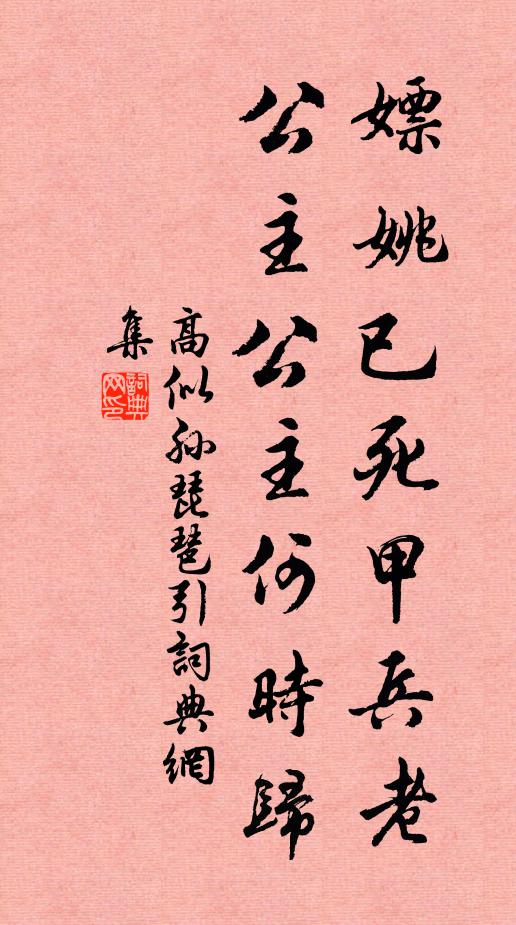 嫖姚已死甲兵老
公主公主何時歸
高似孙琵琶引詞典網
集
詞典網印